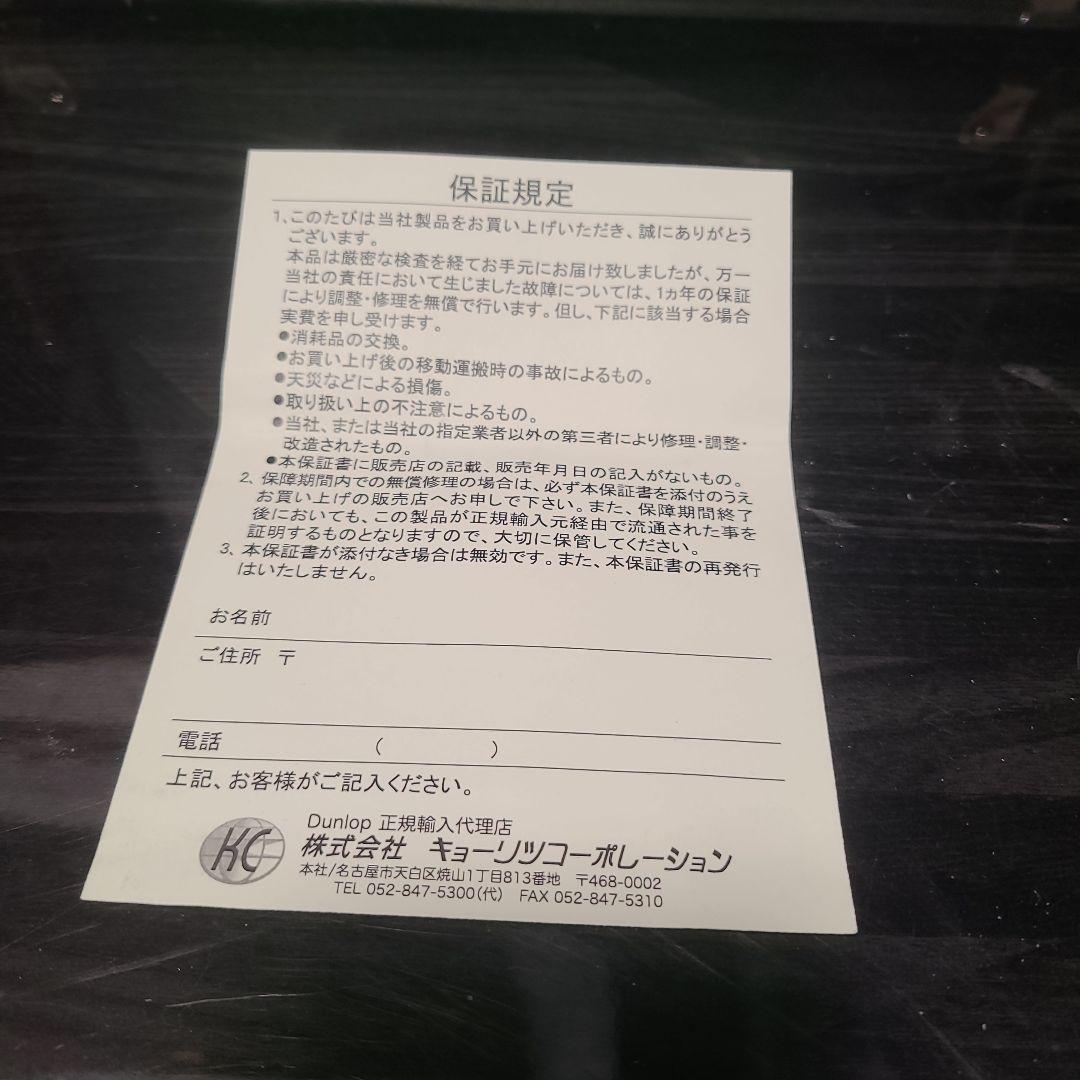 保証規定
1、このたびは当社製品をお買い上げいただき、誠にありがとう
ございます。
本品は厳密な検査を経てお手元にお届け致しましたが、万一
当社の責任において生じました故障については、1ヵ年の保証
により調整・修理を無償で行います。但し、下記に該当する場合
実費を申し受けます。
●消耗品の交換。
●お買い上げ後の移動運搬時の事故によるもの。
●天災などによる損傷。
●取り扱い上の不注意によるもの。
●当社、または当社の指定業者以外の第三者により修理・調整・
改造されたもの。
●本保証書に販売店の記載、販売年月日の記入がないもの。
2、保障期間内での無償修理の場合は、必ず本保証書を添付のうえ
お買い上げの販売店へお申しで下さい。また、保障期間終了
後においても、この製品が正規輸入元経由で流通された事を
証明するものとなりますので、大切に保管してください。
3、本保証書が添付なき場合は無効です。また、本保証書の再発行
はいたしません。
お名前
ご住所 〒
電話 ( )
上記、お客様がご記入ください。
KC
Dunlop 正規輸入代理店
株式会社 キョーリツコーポレーション
本社/名古屋市天白区焼山1丁目813番地 〒468-0002
TEL 052-847-5300(代) FAX 052-847-5310